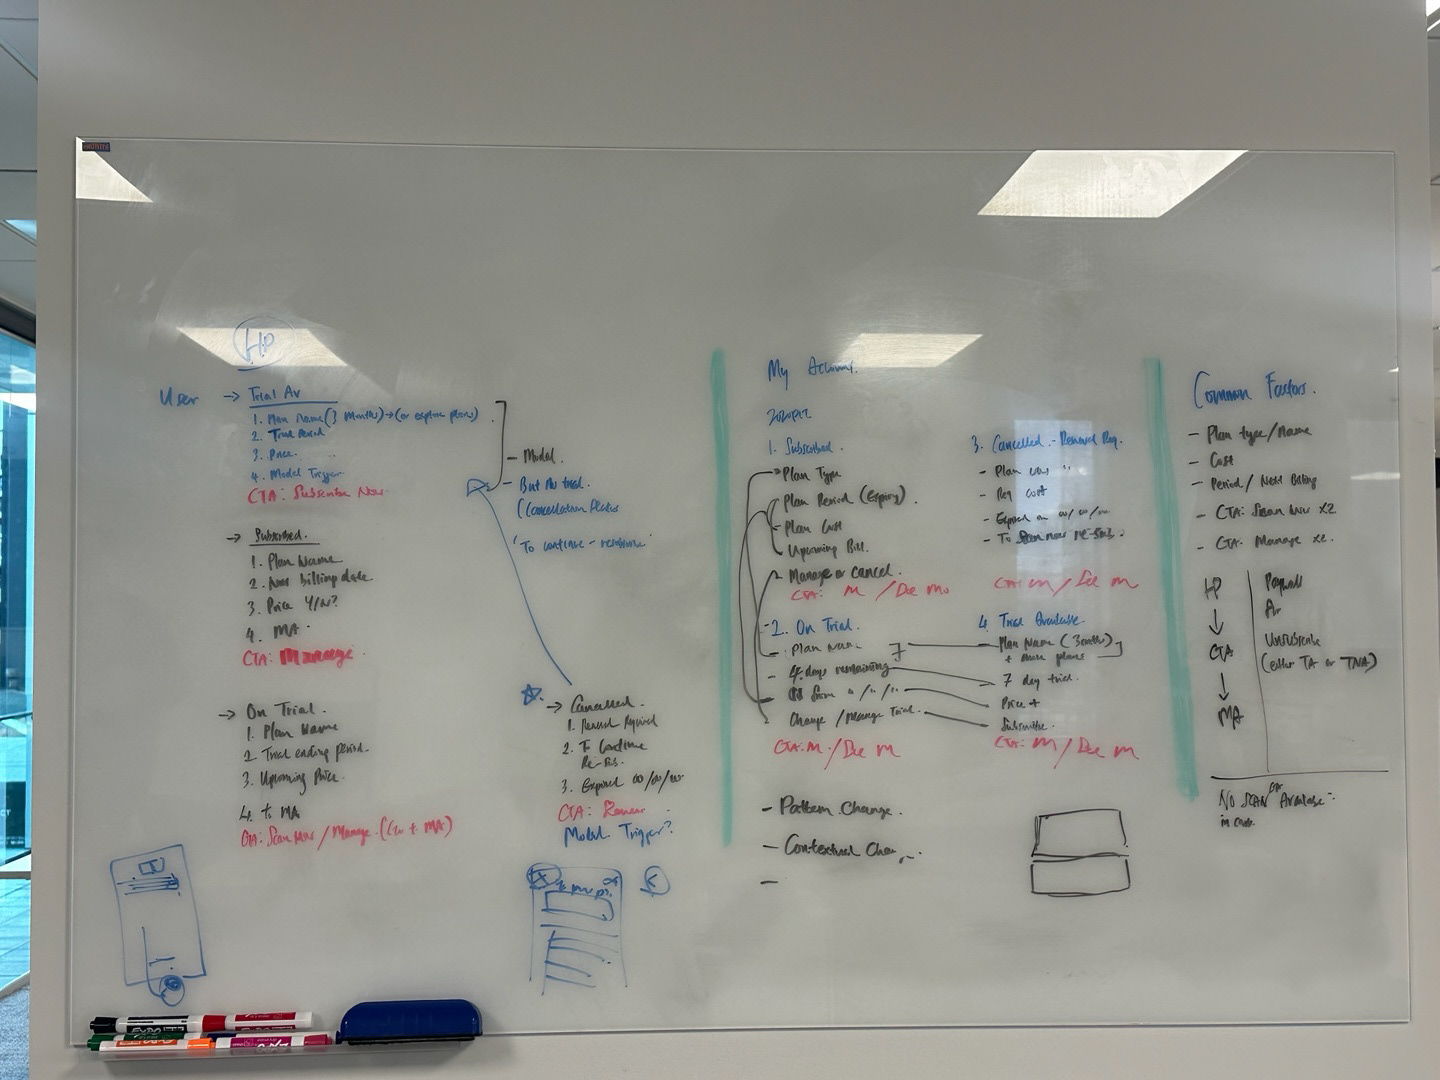 HP
User → Trial Av
1. Plan Name (3 months) → (or explore plans)
2. Trial Period
3. Price.
4. Model Trigger
CTA: Subscribe Now.
- Model.
- But no trial.
(Cancellation
"To continue - resubscribe"
→ Subscribed.
1. Plan Name
2. Next billing date.
3. Price Y/N?
4. MA.
CTA: Manage.
→ On Trial.
1. Plan Name
2. Trial ending period.
3. Upcoming Price.
4. to MA
CTA: Scan Now / Manage. (Go to MA)
→ Cancelled.
1. Renewal Required
2. To Continue
Re-sub.
3. Expired 00/00/00
CTA: Renew
Model Trigger?
X
My Account.
1. Subscribed.
- Plan Type
- Plan Period (Expiry).
- Plan Cost
- Upcoming Bill.
- Manage or Cancel.
CTA: M / Dee M
2. On Trial.
- Plan Name
- 4. days remaining
from
Change / Manage Trial.
CTA: M / Dee M
3. Cancelled - Renewal Req.
- Plan was "
- Req cost
- Expired on 00/00/00
- To re-sub.
CTA: M / Dee M
4. Trial Available.
- Plan Name (3 months)
+ more plans
- 7 day trial.
- Price +
- Subscribe
CTA: M / Dee M
- Pattern Change.
- Contextual Change.
-
Common Factors.
- Plan type/Name
- Cost
- Period / Next Billing
- CTA: Scan Now x2
- CTA: Manage x2.
HP
↓
CTA
↓
MA
Paywall
Av
(either TA or TNA)
No SCAN Available